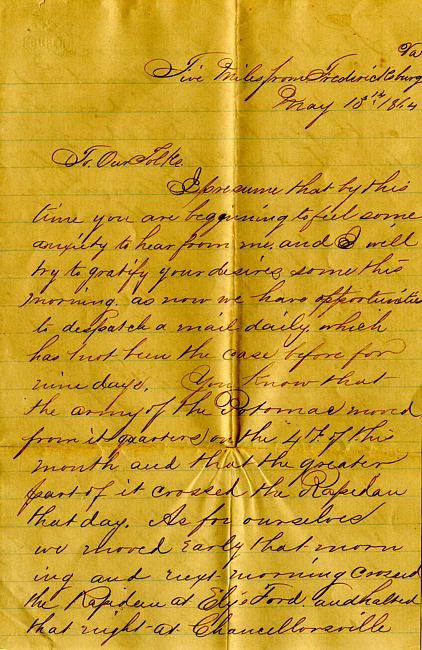 Va
Five Miles from Fredericksburg
May 13th 1864
To Our Folks
I presume that by this
time you are beginning to feel some
anxiety to hear from me. and I will
try to gratify your desires some this
morning. as now we have opportunities
to despatch a mail daily, which
has not been the case before for
nine days. You know that
the army of the Potomac moved
from it quarters on the 4th of this
month and that the greater
part of it crossed the Rapidan
that day. As for ourselves
we moved early that morn
ing and next morning crossed
the Rapidan at Ely's Ford. and halted
that night at Chancellorsville